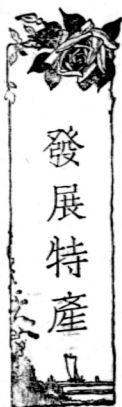 發展特產